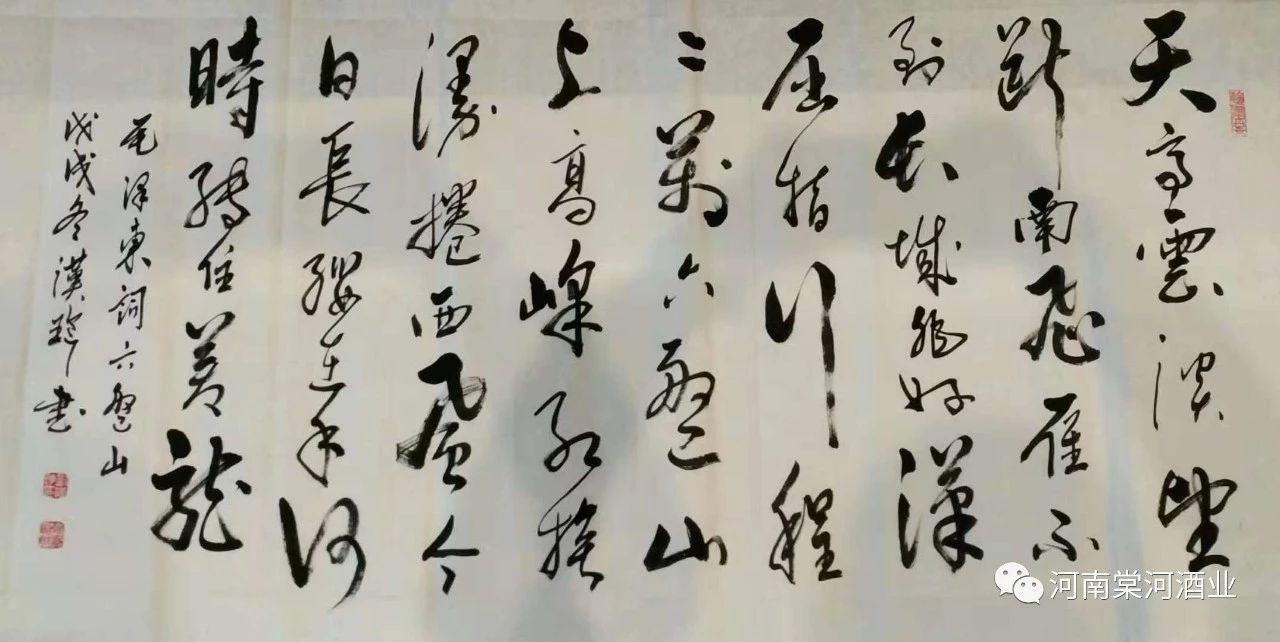 天高雲淡望
断南飛雁不
到長城非好漢
屈指行程
二萬六盤山
上高峰紅旗
漫捲西風今
日長纓在手何
時縛住蒼龍
毛澤東詞六盤山
戊戌冬漢珍書
河南棠河酒业